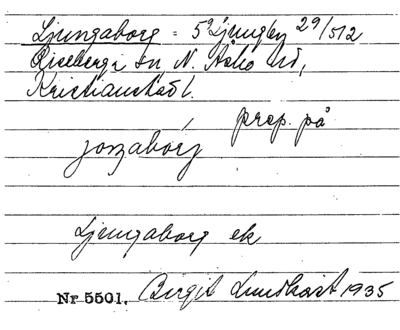 Ljungaborg = 5⁹ Ljungby 29/512
Riseberga sn N. Åsbo hd,
Kristianstad l.
prep. på
joŋabórj
Ljungaborg ek
Nr 5501. Birgit Lundkvist 1935